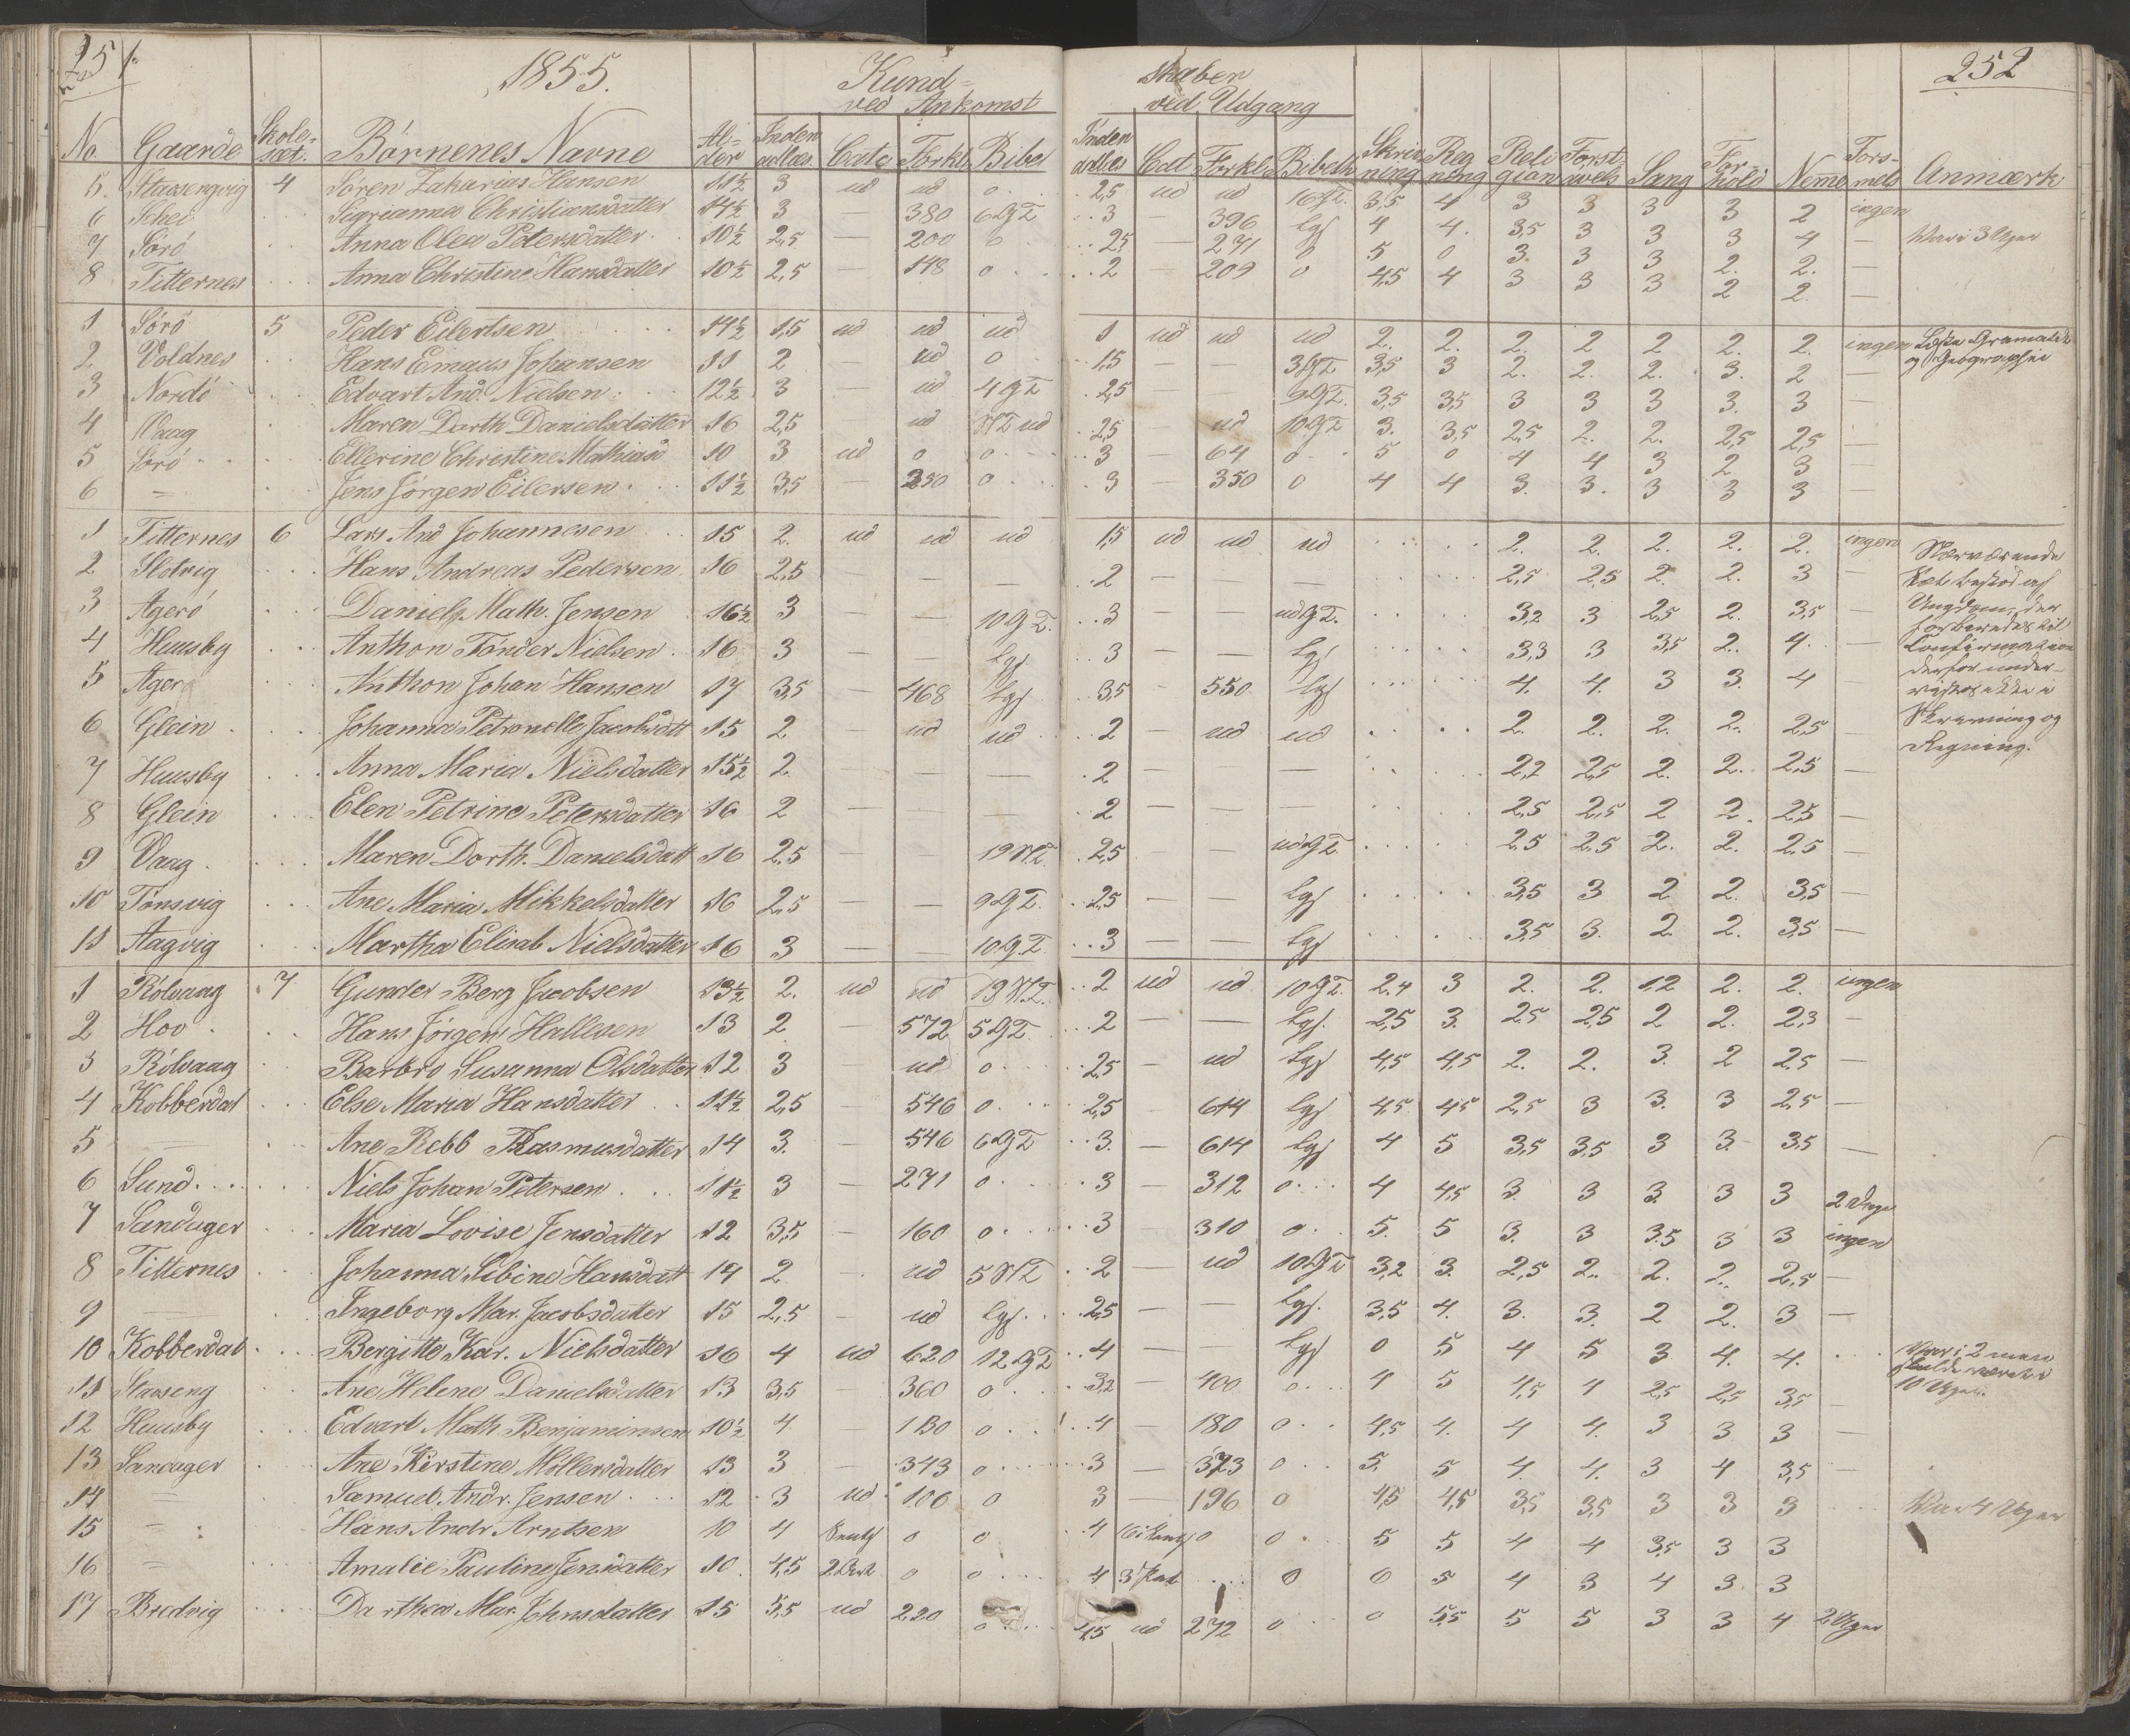 251. 1855. Kund= skaber 252
ved Ankomst ved Udgang
No Gaarde Skole-sæt. Børnenes Navne Al-der Inden adlæs Cate Forkl. Bibel Inden adlæs Cat. Forkl. Bibelh Skriv ning Reg ning Reli gion Forst. Sang For hold Nemme Fors- mels Anmærk
5. Stavsengvig 4 Søren Zakarias Hansen 11½ 3 ud ud o 2,5 ud ud 10 GT. 3,5 4 3 3 3 3 2 ingen
6 Schei Sigrianna Christiansdatter 14½ 3 — 380 6 GT 3 — 396 4 4. 3,5 3 3 3 4 — Var i 3 Uger
7 Sørø Anna Olea Petersdatter 10½ 2,5 — 200 o 2,5 — 271 o 5 o 3. 3 3 2. 2. —
8 Titternes Anna Christine Hansdatter 10½ 2,5 — 148 o 2 — 209 o 4,5 4 3 3 3 2 2. —
1 Sørø 5 Peder Eilertsen 14½ 1,5 ud ud ud 1 ud ud ud 2. 2. 2. 2 2 2. 2. ingen Læste Gramatik
2. Voldnes Hans Emaus Johansen 11 2 ud o 1,5 — — 3 GT 3,5 3 2. 2. 2. 3. 2 — og Geographie
3 Nordø Edvart And. Nielsen 12½ 3 — ud 4 GT 2,5 9 GT. 3,5 3,5 3 3 3 3. 3 —
4 Vaag Maren Dorth Danielsdatter 16 2,5 ud NT ud 2,5 ud 10 GT 3. 3,5 2,5 2. 2. 2,5 2,5 —
5 Sørø Ellerine Christine Mathiasd 10 3 ud o o 3 — 64 o 5 o 4 4 3 2 3 —
6 — Jens Jørgen Eilersen 11½ 3,5 — 250 o 3 — 350 o 4 4 3. 3. 3 3 3 —
1 Titternes 6 Lars And Johannesen 15 2. ud ud ud 1,5 ud ud ud 2. 2. 2. 2. 2. ingen Nærværende
2 Slotvig Hans Andreas Pedersen 16 2,5 — — 2 — — 2,5 2,5 2. 2. 3 — Sæt bestod af
3 Agerø Daniel Math. Jensen 16½ 3 — — 10 GT. 3 — — ud GT. 3,2 3 2,5 2. 3,5 — Ungdom, der
4 Huusby Anthon Tønder Nielsen 16 3 — — 3 — — 3,3 3 3,5 2. 4. — forberedes til
Confirmation
5 Agerø Anthon Johan Hansen 17 3,5 468 3,5 — 550 4. 4. 3 3. 4 — derfor under-
vistes ikke i
6 Glein Johanna Petronelle Jacobsdtt 15 2. — ud ud 2 — ud ud 2. 2. 2. 2. 2,5 Skrivning og
Regning.
7 Huusby Anna Maria Nielsdatter 15½ 2. — — — 2 — — — 2,2 2,5 2. 2. 2,5 —
8 Glein Elen Petrine Petersdatter 16 2 — — — 2 — — — 2,5 2,5 2 2. 2,5 —
9 Vaag Maren Dorth. Danielsdatt 16 2,5 — — 19 NT. 2,5 — — ud GT. 2,5 2,5 2. 2. 2,5 —
10 Tønsvig Ane Maria Mikkelsdatter 16 2,5 — — 9 GT. 2,5 — — 3,5 3 2 2. 3,5 —
11 Aagvig Martha Elisab Nielsdatter 16 3 — — 10 GT. 3 — — 3,5 3. 2. 2. 3,5 —
1 Rølvaag 7 Gunder Berg Jacobsen 13½ 2. ud ud 19 NT. 2 ud ud 10 GT. 2.4 3 2. 2. 1,2 2. 2. ingen
2 Hov Hans Jørgen Hallesen 13 2 — 572 5 GT 2 — — 2,5 3. 2,5 2,5 2 2. 2,3 —
3 Rølvaag Barbro Susanna Olsdatter 12 3 ud o 2,5 — ud 4,5 4,5 2. 2. 3. 2 2,5 —
4 Kobberdal Else Maria Hansdatter 11½ 2,5 — 546 o 2,5 — 614 4,5 4,5 2,5 3 3. 3 2,5 —
5 — Ane Rebb Rasmusdatter 14 3. — 546 6 GT 3. — 614 4 5 3,5 3,5 3 3. 3,5 —
6 Sund Niels Johan Petersen 11½ 3 — 271 o 3 — 312 o 4 4,5 3. 3 3. 3 3 2 Uger
7 Sandager Maria Lovise Jensdatter 12 3,5 — 160 o 3 — 310 o 5. 5 3. 3 3.5 3 3 ingen
8 Titternes Johanna Sibine Hansdatt 14 2 ud 5 NT 2 — ud 10 GT 3,2 3. 2,5 2. 2. 2. 2,5 —
9 — Ingeborg Mar. Jacobsdatter 15 2,5 — ud 2,5 — — 3,5 4. 3. 3. 2 2. 3 —
10 Kobberdal Bergitte Kar. Nielsdatter 16 4 ud 620 12 GT 4 — 0 5 4 5 3 4. 4. Var i 2 men
skulde været i
10 Uger.
11 Stavseng Ane Helene Danielsdatter 13 3,5 — 360 o 3,2 — 400 o 4 5 4,5 4 2,5 2,5 3,5 —
12 Huusby Edvart Math Benjaminsen 10½ 4 — 130 o 4 — 180 o 4,5 4. 4 4. 3 3 3 —
13 Sandager Ane Kirstine Møllersdatter 13 3 — 343 o 3 — 373 o 5. 5 4. 4. 3 4 3,5 —
14 — Samuel Andr. Jensen 12 3 ud 106 o 3 — 196 o 4,5 4,5 3,5 3,5 3 3 3 Var 4 Uger
15 — Hans Andr Arntsen 10 4 o o 4 o o 5 5 4 4 3,5 3 3
16 — Amalie Pauline Jensdatter 10. 4,5 o o 4 o 0 5 4 3 4 3. 3
17 Bredvig Dorthea Mar. Johnsdatter 15 5,5 ud 220 o 4,5 ud 272 o 0 5,5 5 5 3 3 4 2 Uger